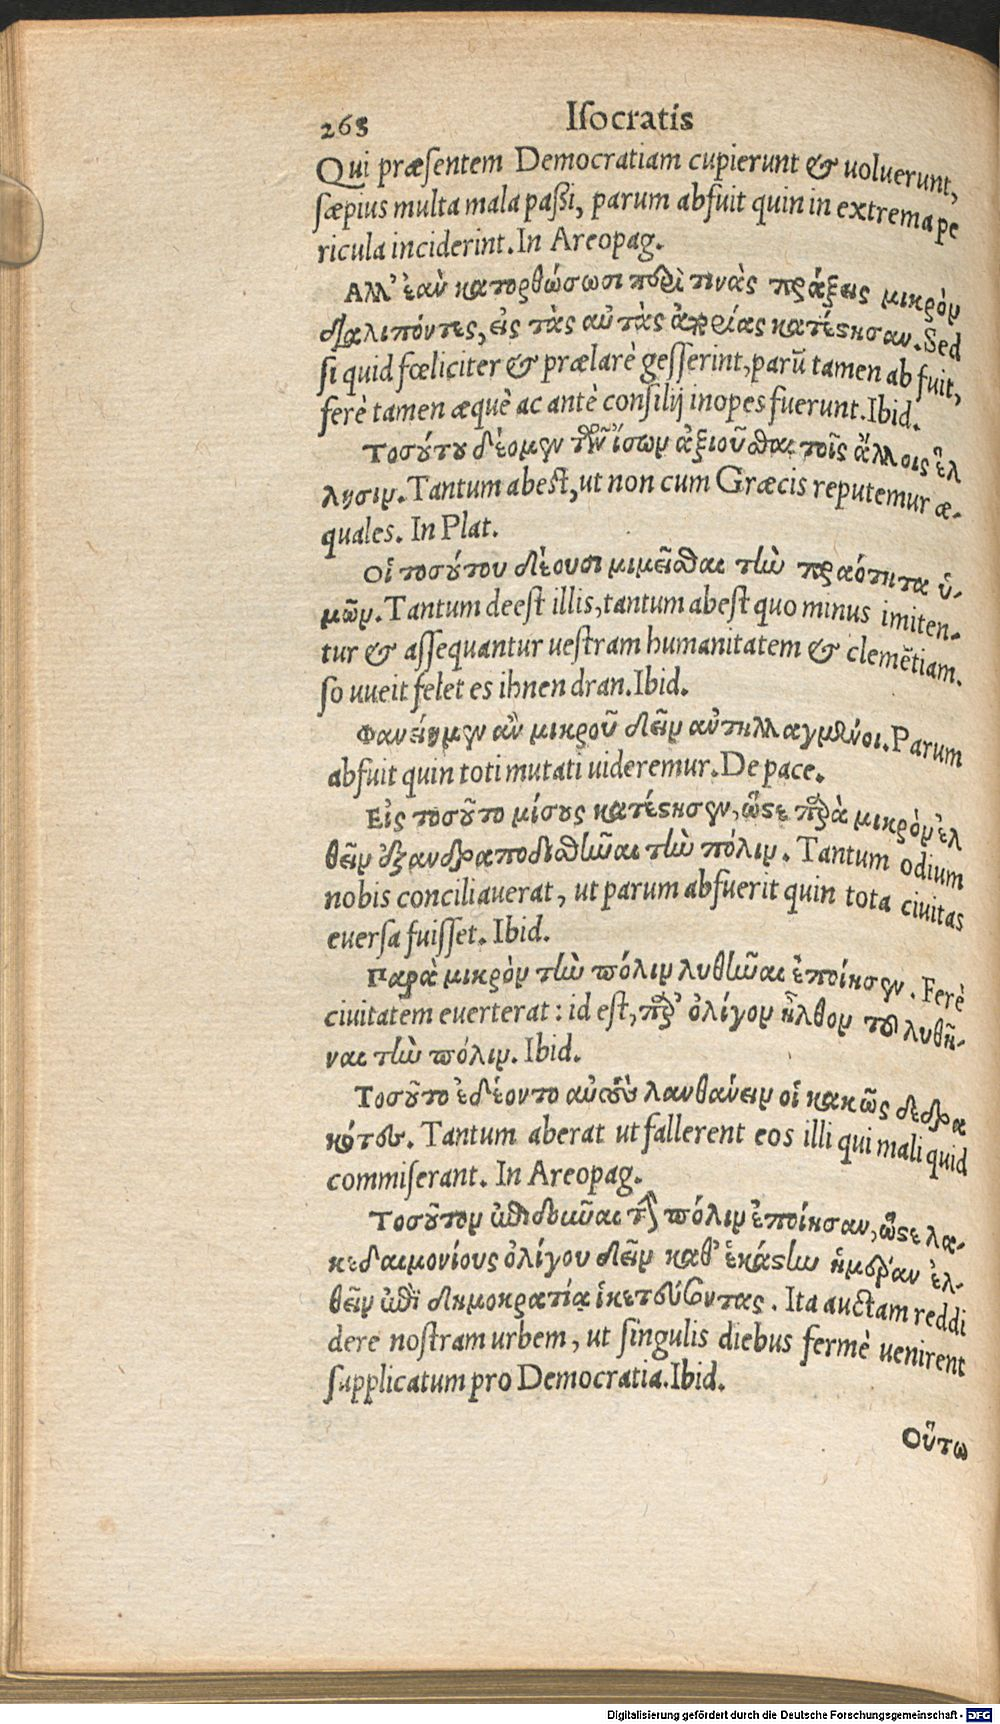 268 Iſocratis
Qui præſentem Democratiam cupierunt & uoluerunt,
ſæpius multa mala paßi, parum abfuit quin in extrema pe
ricula inciderint. In Areopag.
Αλλ' ἐαὺ κατορθώσωσι περὶ τινὰς πράξεις μικρὸν
διαλιπόντες, εἰς τὰς αὐτὰς ἀπορίας κατέςησαν. Sed
ſi quid fœliciter & prælarè geſſerint, parū tamen abfuit,
ferè tamen æquè ac antè conſilij inopes fuerunt. Ibid.
Τοσύτυ δέομεν τῶν ἴσων ἀξιοῦσθαι τοῖς ἄλλοις ἕλ
λησιν. Tantum abeſt, ut non cum Græcis reputemur æ-
quales. In Plat.
Οἱ τοσύτου δέουσι μιμεῖσθαι τὴν πραότητα ὑ-
μῶν. Tantum deeſt illis, tantum abeſt quo minus imiten-
tur & aſſequantur ueſtram humanitatem & clemētiam.
ſo uueit felet es ihnen dran. Ibid.
Φανείημεν ἂν μικροῦ δεῖν αὐτηλλαγμένοι. Parum
abfuit quin toti mutati uideremur. De pace.
Εἰς τοσῦτο μίσους κατέςησεν, ὥςε παρὰ μικρὸν ἐλ
θεῖν ἐξανδραποδισθῆναι τὴν πόλιν. Tantum odium
nobis conciliauerat, ut parum abfuerit quin tota ciuitas
euerſa fuiſſet. Ibid.
Παρὰ μικρὸν τὴν πόλιν λυθῆναι ἐποίησεν. Ferè
ciuitatem euerterat: id eſt, παρ' ὀλίγον ἦλθον τοῦ λυθῆ-
ναι τὴν πόλιν. Ibid.
Τοσῦτο ἐδέοντο αὐτοὺς λανθάνειν οἱ κακῶς δεδρα
κότες. Tantum aberat ut fallerent eos illi qui mali quid
commiſerant. In Areopag.
Τοσῦτον ἐπιδοῦναι τὴν πόλιν ἐποίησαν, ὥςε λα-
κεδαιμονίους ὀλίγου δεῖν καθ' ἑκάςην ἡμέραν ἐλ-
θεῖν ἐπὶ δημοκρατίᾳ ἱκετεύσοντας. Ita auctam reddi
dere noſtram urbem, ut ſingulis diebus fermè uenirent
ſupplicatum pro Democratia. Ibid.
Οὕτω
Digitalisierung gefördert durch die Deutsche Forschungsgemeinschaft - DFG